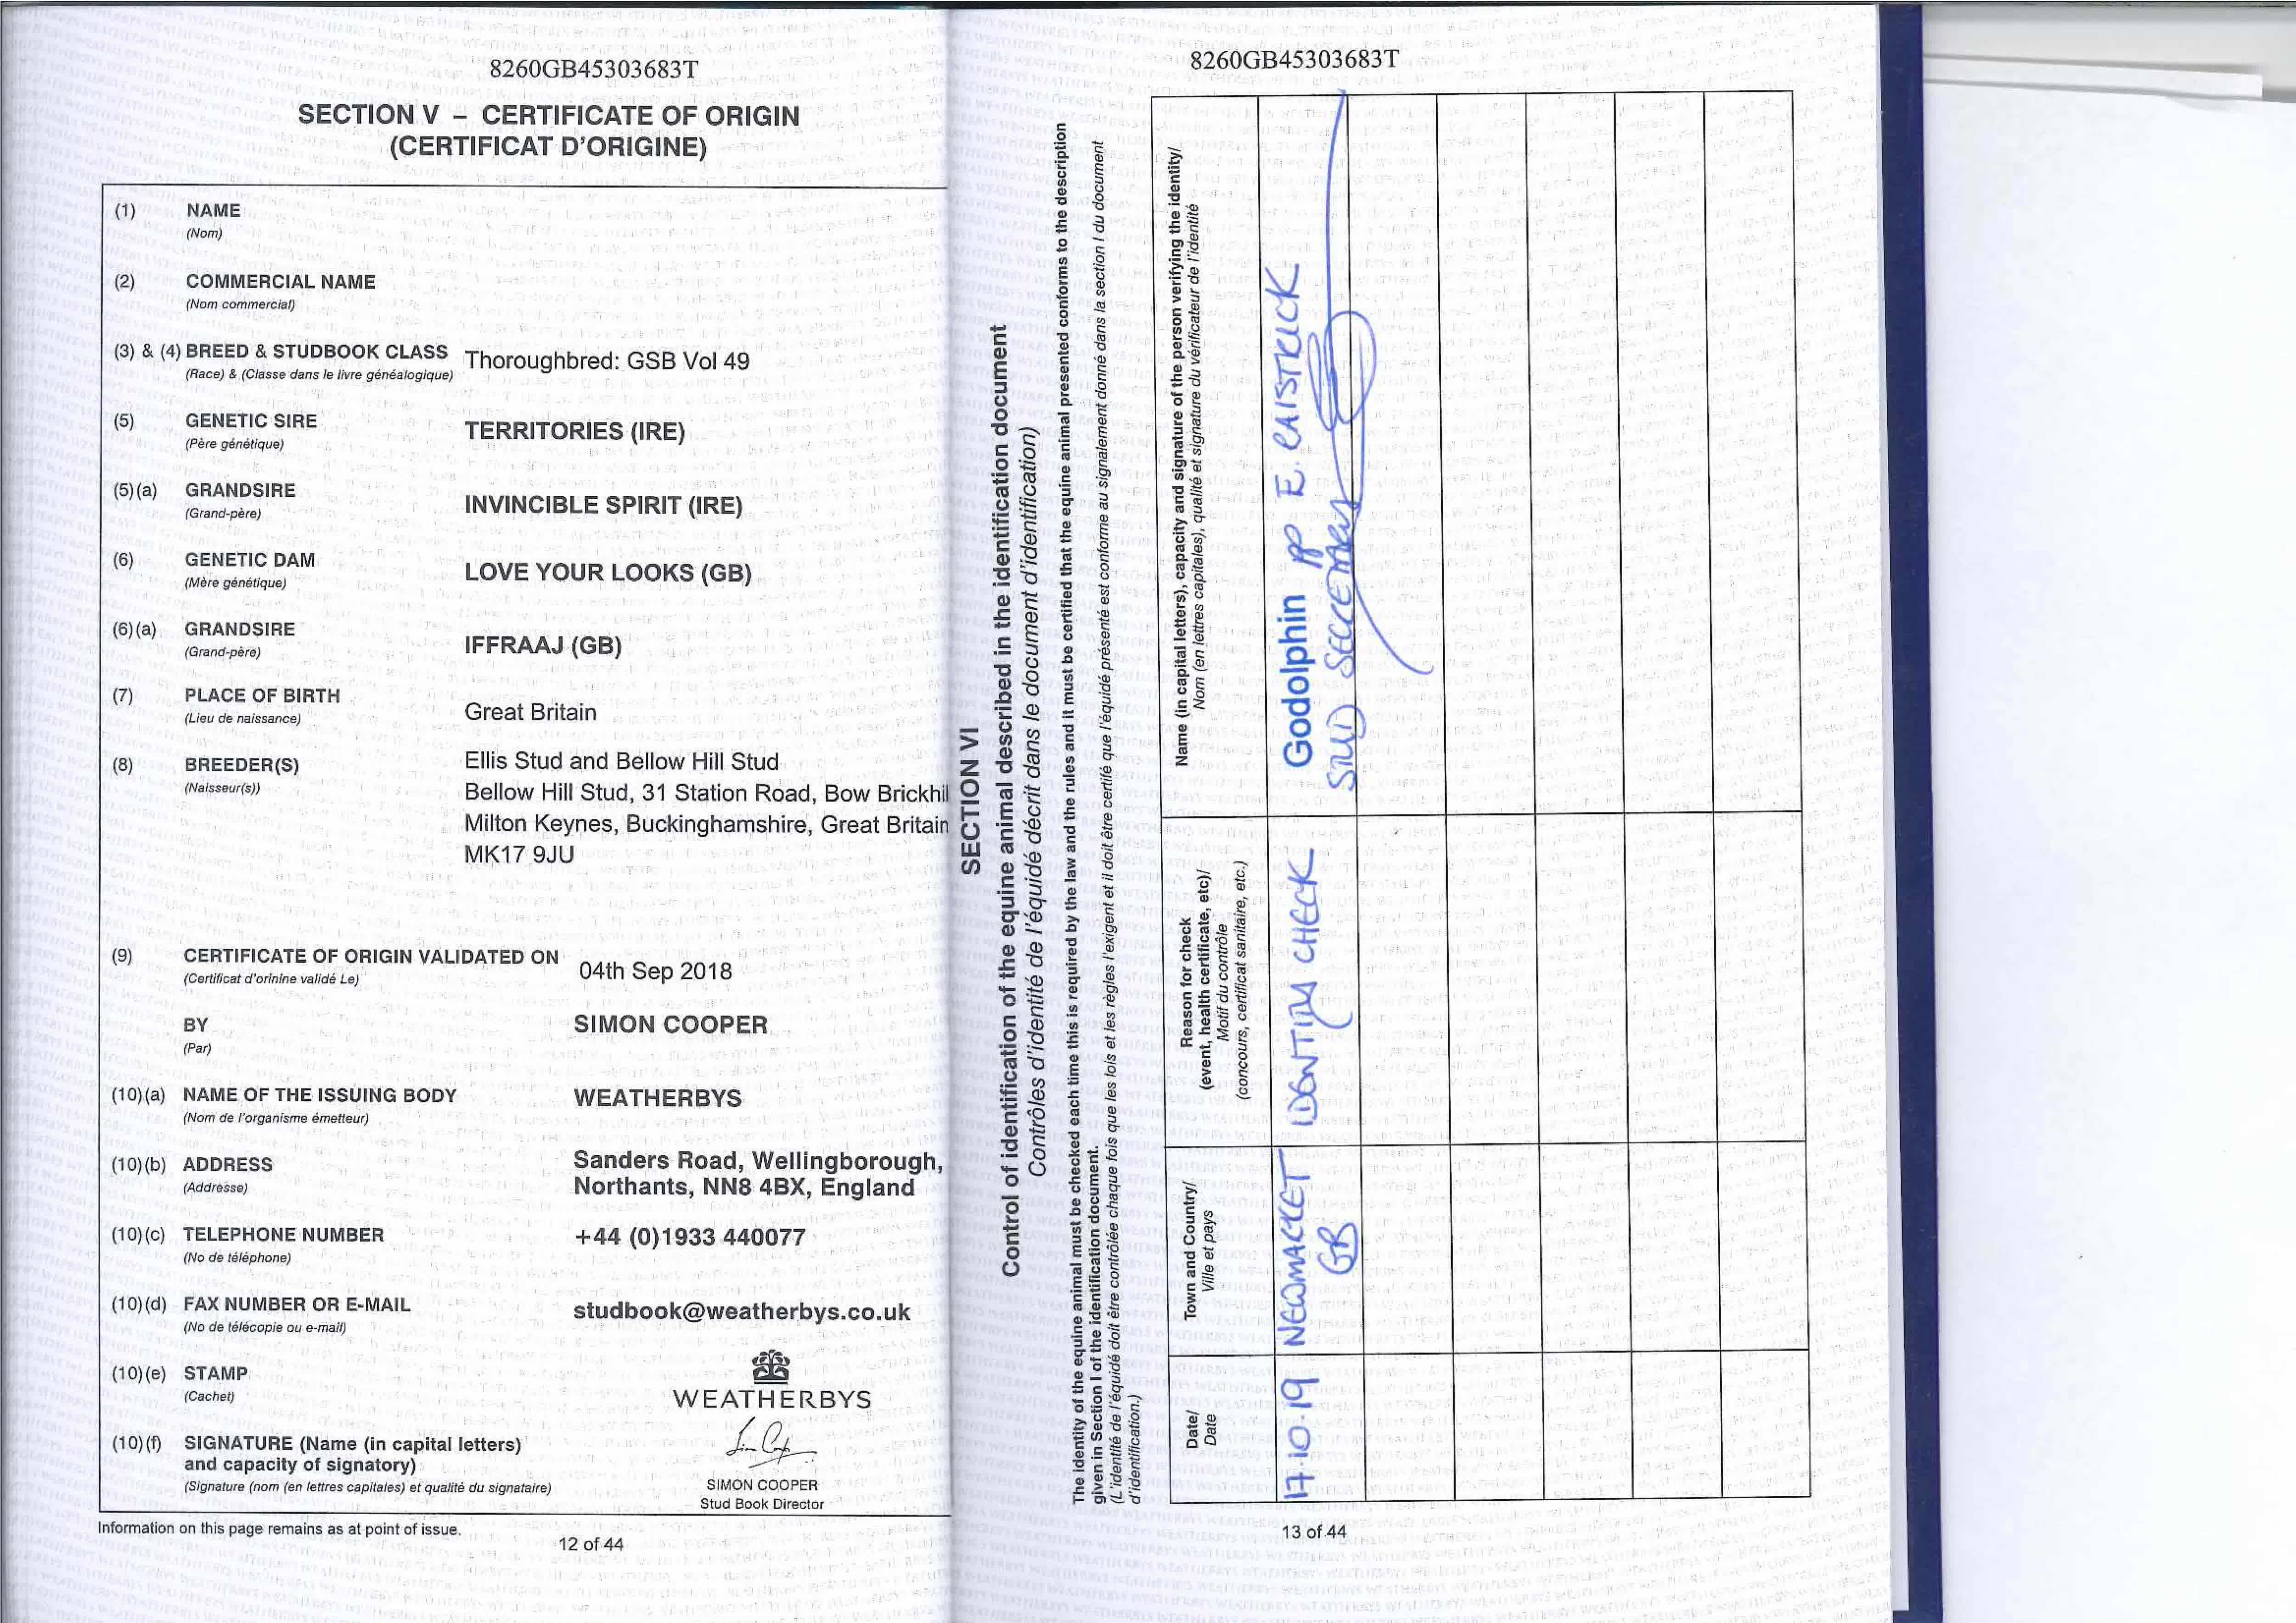 8260GB45303683T
SECTION V – CERTIFICATE OF ORIGIN
(CERTIFICAT D'ORIGINE)
(1) NAME
(Nom)
(2) COMMERCIAL NAME
(Nom commercial)
(3) & (4) BREED & STUDBOOK CLASS Thoroughbred: GSB Vol 49
(Race) & (Classe dans le livre généalogique)
(5) GENETIC SIRE TERRITORIES (IRE)
(Père génétique)
(5)(a) GRANDSIRE INVINCIBLE SPIRIT (IRE)
(Grand-père)
(6) GENETIC DAM LOVE YOUR LOOKS (GB)
(Mère génétique)
(6)(a) GRANDSIRE IFFRAAJ (GB)
(Grand-père)
(7) PLACE OF BIRTH Great Britain
(Lieu de naissance)
(8) BREEDER(S) Ellis Stud and Bellow Hill Stud
(Naisseur(s)) Bellow Hill Stud, 31 Station Road, Bow Brickhil
Milton Keynes, Buckinghamshire, Great Britain
MK17 9JU
(9) CERTIFICATE OF ORIGIN VALIDATED ON 04th Sep 2018
(Certificat d'orinine validé Le)
BY SIMON COOPER
(Par)
(10)(a) NAME OF THE ISSUING BODY WEATHERBYS
(Nom de l'organisme émetteur)
(10)(b) ADDRESS Sanders Road, Wellingborough,
(Addresse) Northants, NN8 4BX, England
(10)(c) TELEPHONE NUMBER +44 (0)1933 440077
(No de téléphone)
(10)(d) FAX NUMBER OR E-MAIL studbook@weatherbys.co.uk
(No de télécopie ou e-mail)
(10)(e) STAMP
(Cachet) WEATHERBYS
(10)(f) SIGNATURE (Name (in capital letters)
and capacity of signatory)
(Signature (nom (en lettres capitales) et qualité du signataire) SIMON COOPER
Stud Book Director
Information on this page remains as at point of issue.
12 of 44
8260GB45303683T
SECTION VI
Control of identification of the equine animal described in the identification document
Contrôles d'identité de l'équidé décrit dans le document d'identification)
The identity of the equine animal must be checked each time this is required by the law and the rules and it must be certified that the equine animal presented conforms to the description
given in Section I of the identification document.
(L'identité de l'équidé doit être contrôlée chaque fois que les lois et les règles l'exigent et il doit être certifé que l'équidé présenté est conforme au signalement donné dans la section I du document
d'identification.)
Date/
Date
Town and Country/
Ville et pays
Reason for check
(event, health certificate, etc)/
Motif du contrôle
(concours, certificat sanitaire, etc.)
Name (in capital letters), capacity and signature of the person verifying the identity/
Nom (en lettres capitales), qualité et signature du vérificateur de l'identité
17.10.19 NEWMARKET IDENTITY CHECK Godolphin pp E. CAISTRICK
GB STUD SECRETARY
13 of 44